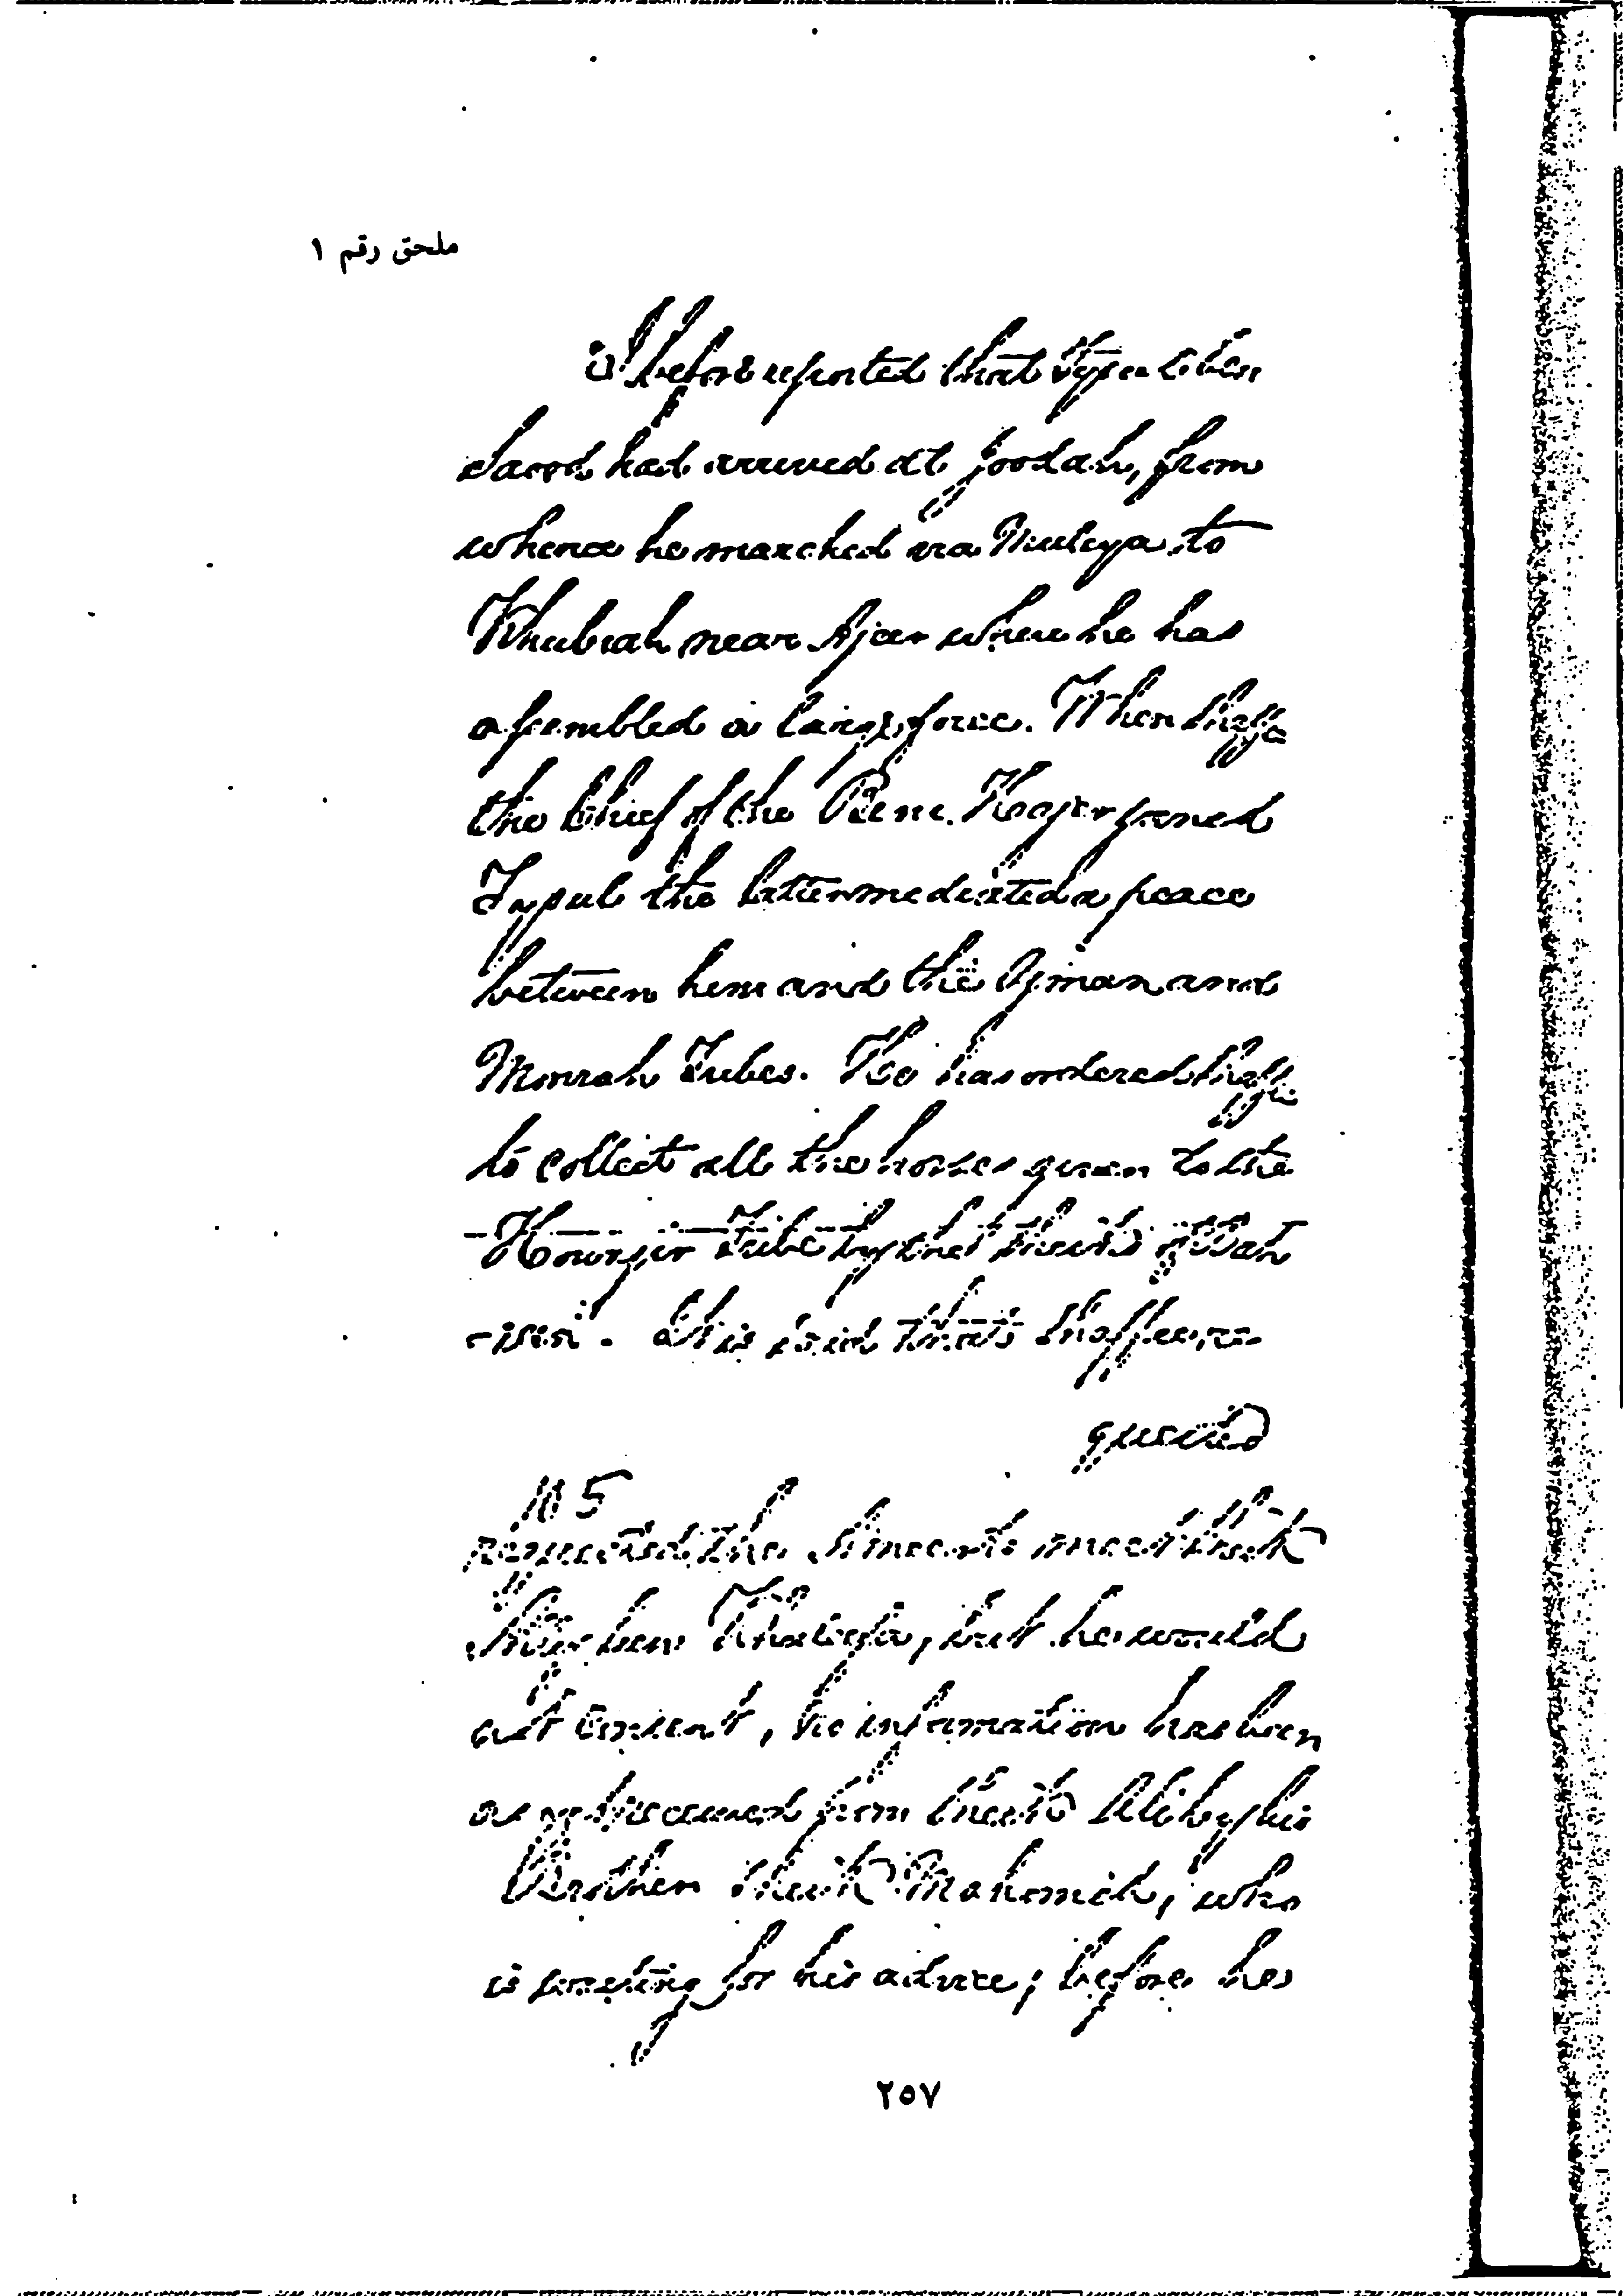 ملحق رقم ١
I before reported that Fysul bin
Saood had arrived at Joodah, from
whence he marched via Muteya to
Khubrah near Ajeer where he has
assembled a large force. When
the Chief of the Beni joined
Fysul the latter mediated a peace
between him and the Ajman and
Monrah Tribes. He has ordered
to collect all the horses given to the
Tribe by the
It is said that
quested
115
requested the to meet Sheik
bin Khalifa, but he would
not consent, the information has been
received from Sheik Ali by his
Brother Sheik Mahomed, who
is sending for his advice; before he
٢٥٧